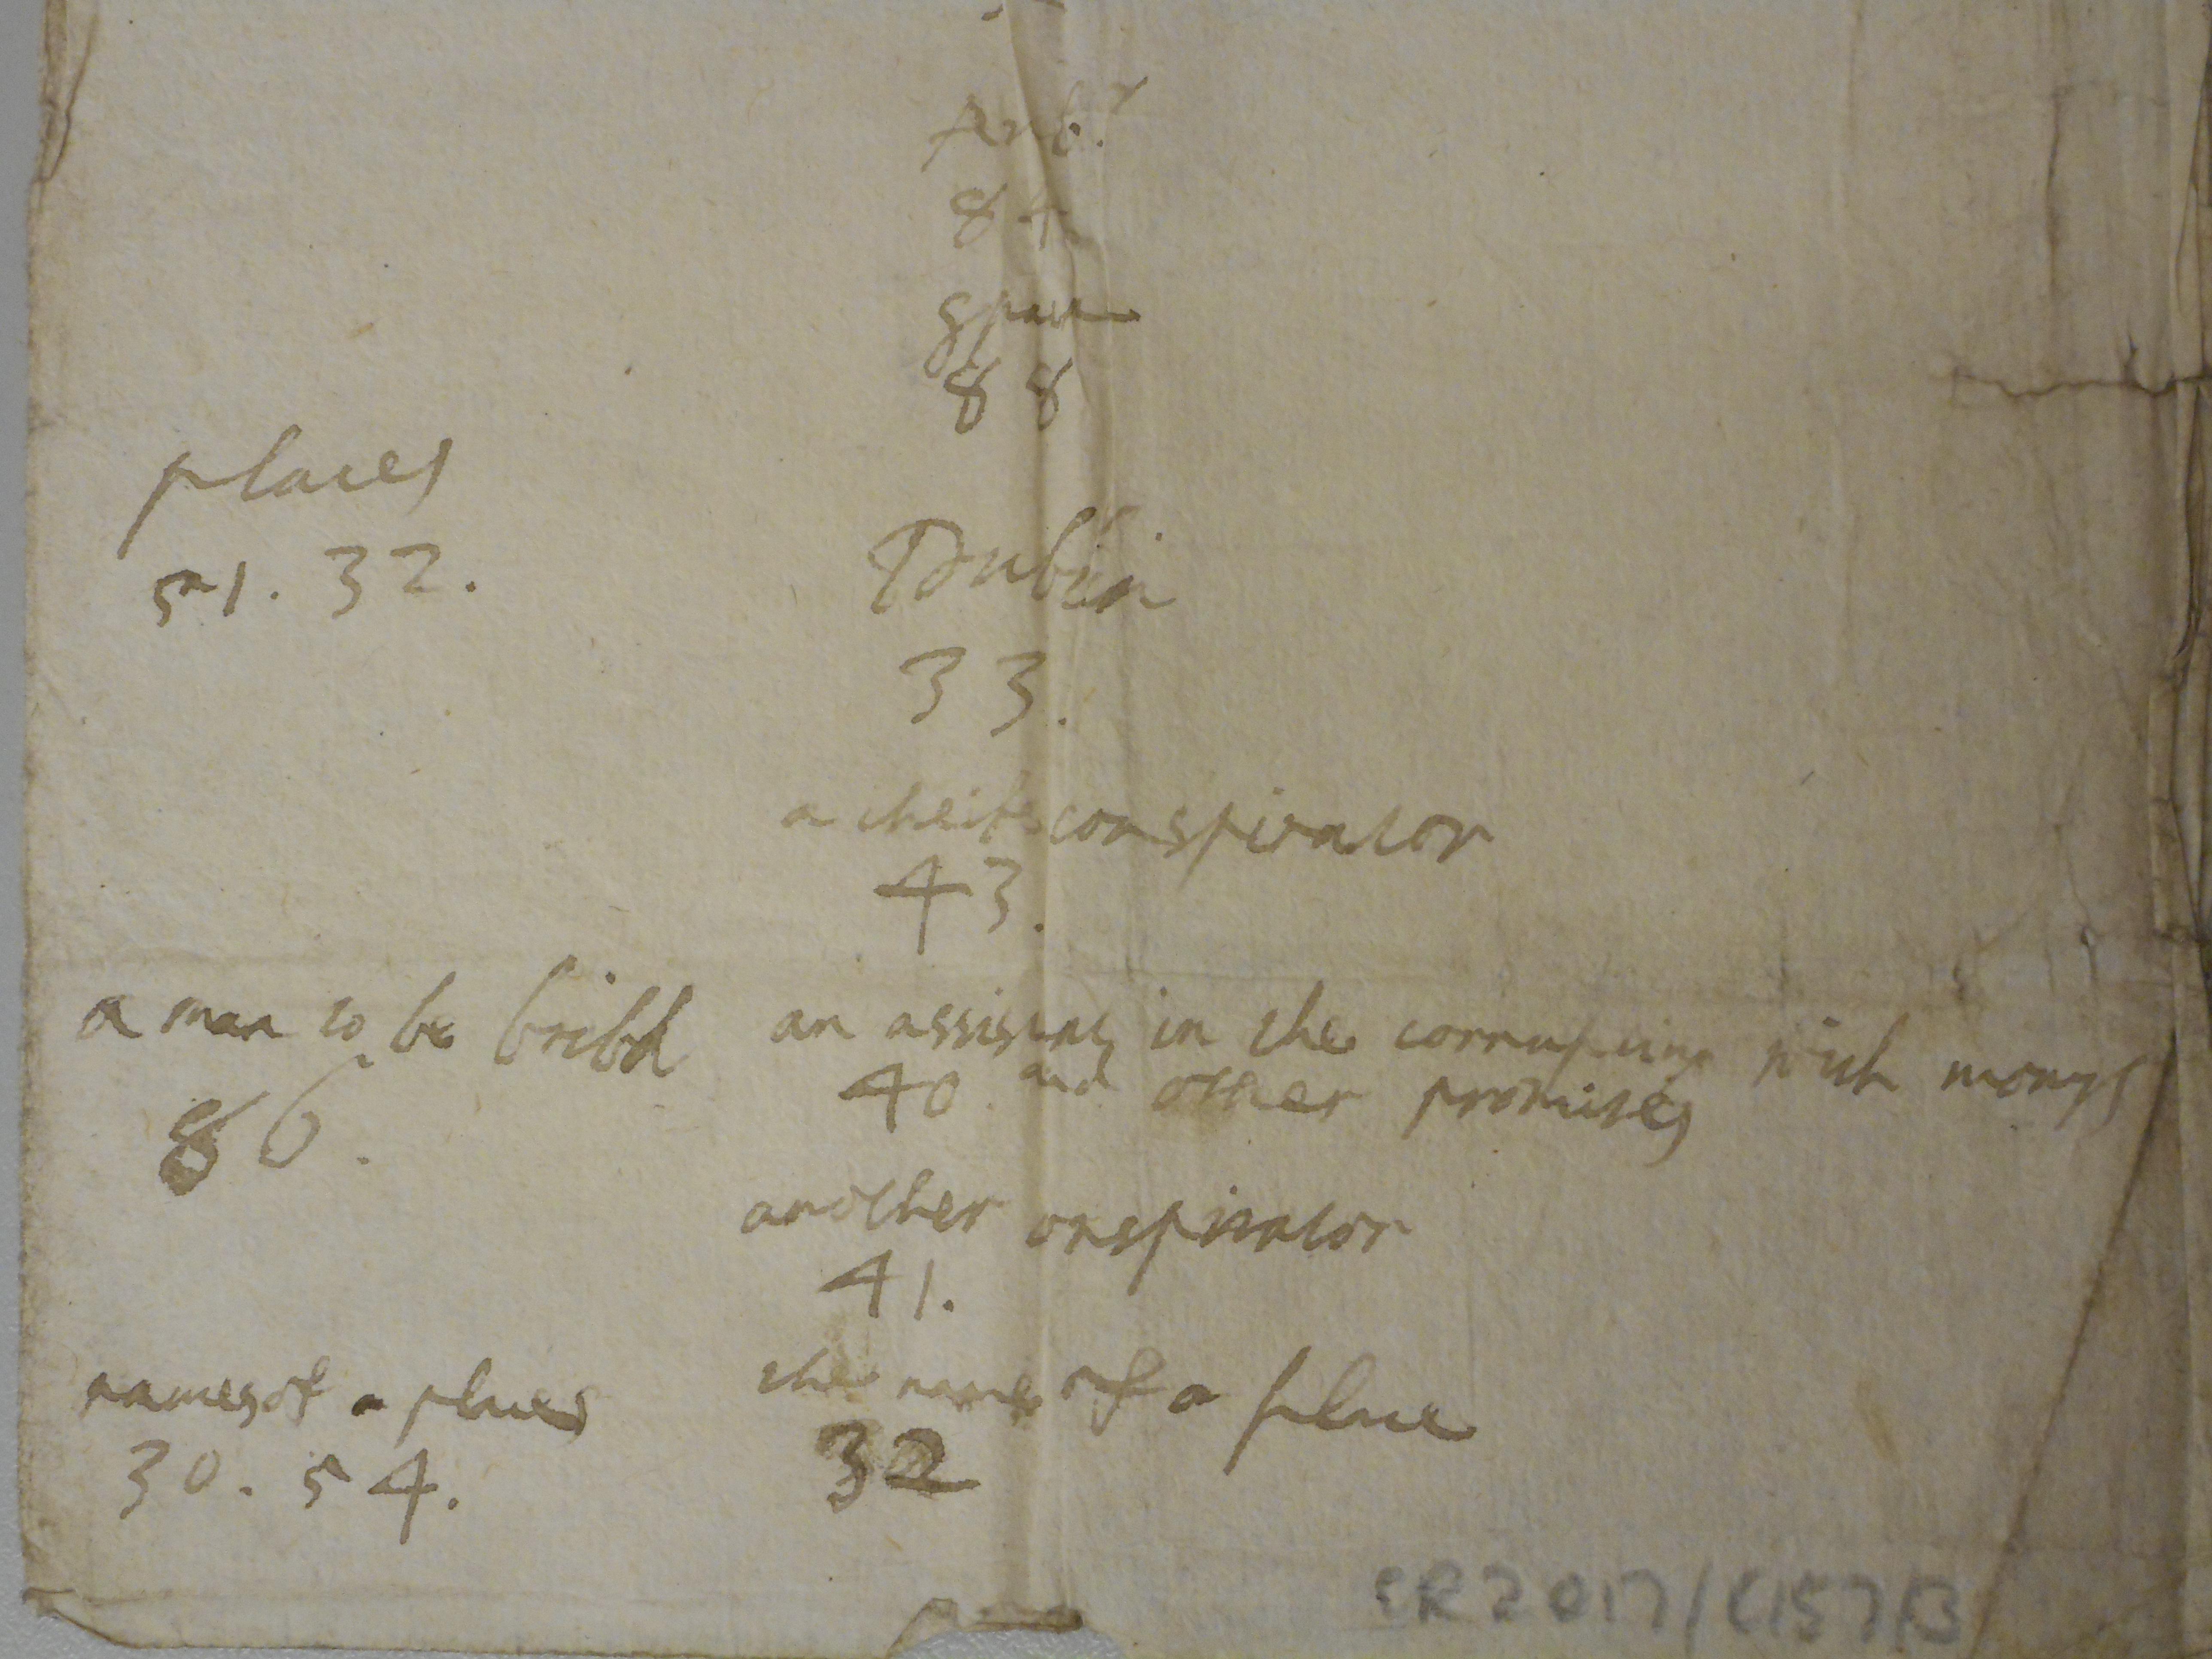 84
Spain
88
places
51. 32.
Dublin
33.
a cheife conspirator
43.
a man to be bribd
86.
an assistant in the corrupting with monys
40. and other promises
another onspirator
41.
names of a places
30. 54.
the name of a place
32